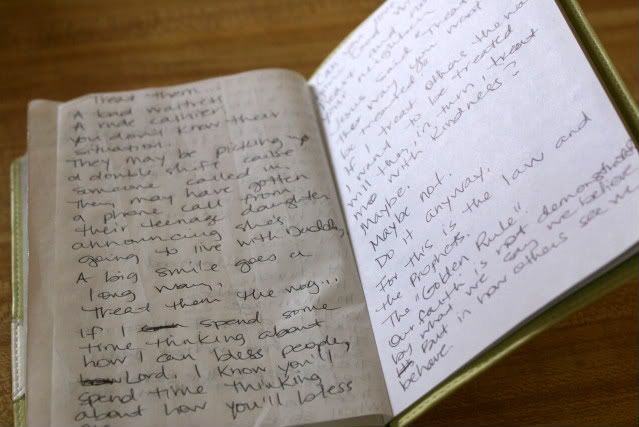 Treat them
A bad waitress
A rude cashier
you don't know their
situation.
They may be picking up
a double shift cause
someone called in
They may have gotten
a phone call from
their teenage daughter
announcing she's
going to live with Daddy
A big smile goes a
long way.
Treat them the way...
If I spend some
time thinking about
how I can bless people,
Lord. I know you'll
spend time thinking
about how you'll bless
neighbor
Jesus said "Treat
you want
If I treat others the way
I want to be treated
will they, in turn, treat
me with kindness?
Maybe.
Maybe not.
Do it anyway.
For this is the law and
the Prophets.
The "Golden Rule"
Our faith is not demonstrated
by what we say we believe
But in how others see we
behave.